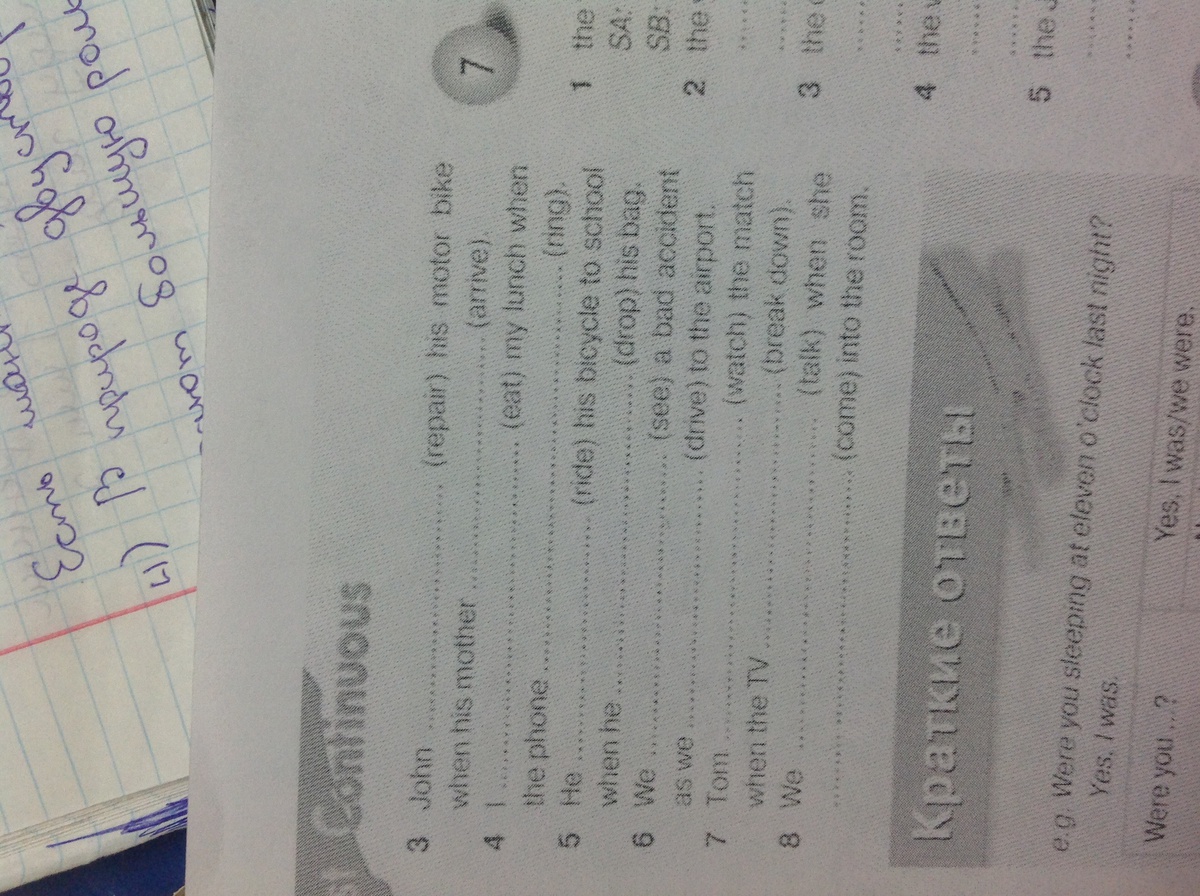 Есть
В природе
4)
Continuous
3 John .............................. (repair) his motor bike
when his mother .............................. (arrive).
4 I .............................. (eat) my lunch when
the phone .............................. (ring).
5 He .............................. (ride) his bicycle to school
when he .............................. (drop) his bag.
6 We .............................. (see) a bad accident
as we .............................. (drive) to the airport.
7 Tom .............................. (watch) the match
when the TV .............................. (break down).
8 We .............................. (talk) when she
.............................. (come) into the room.
Краткие ответы
e.g. Were you sleeping at eleven o'clock last night?
Yes, I was.
Were you...? Yes, I was/we were.
7
1 the
SA:
SB:
2 the
3 the
4 the
5 the